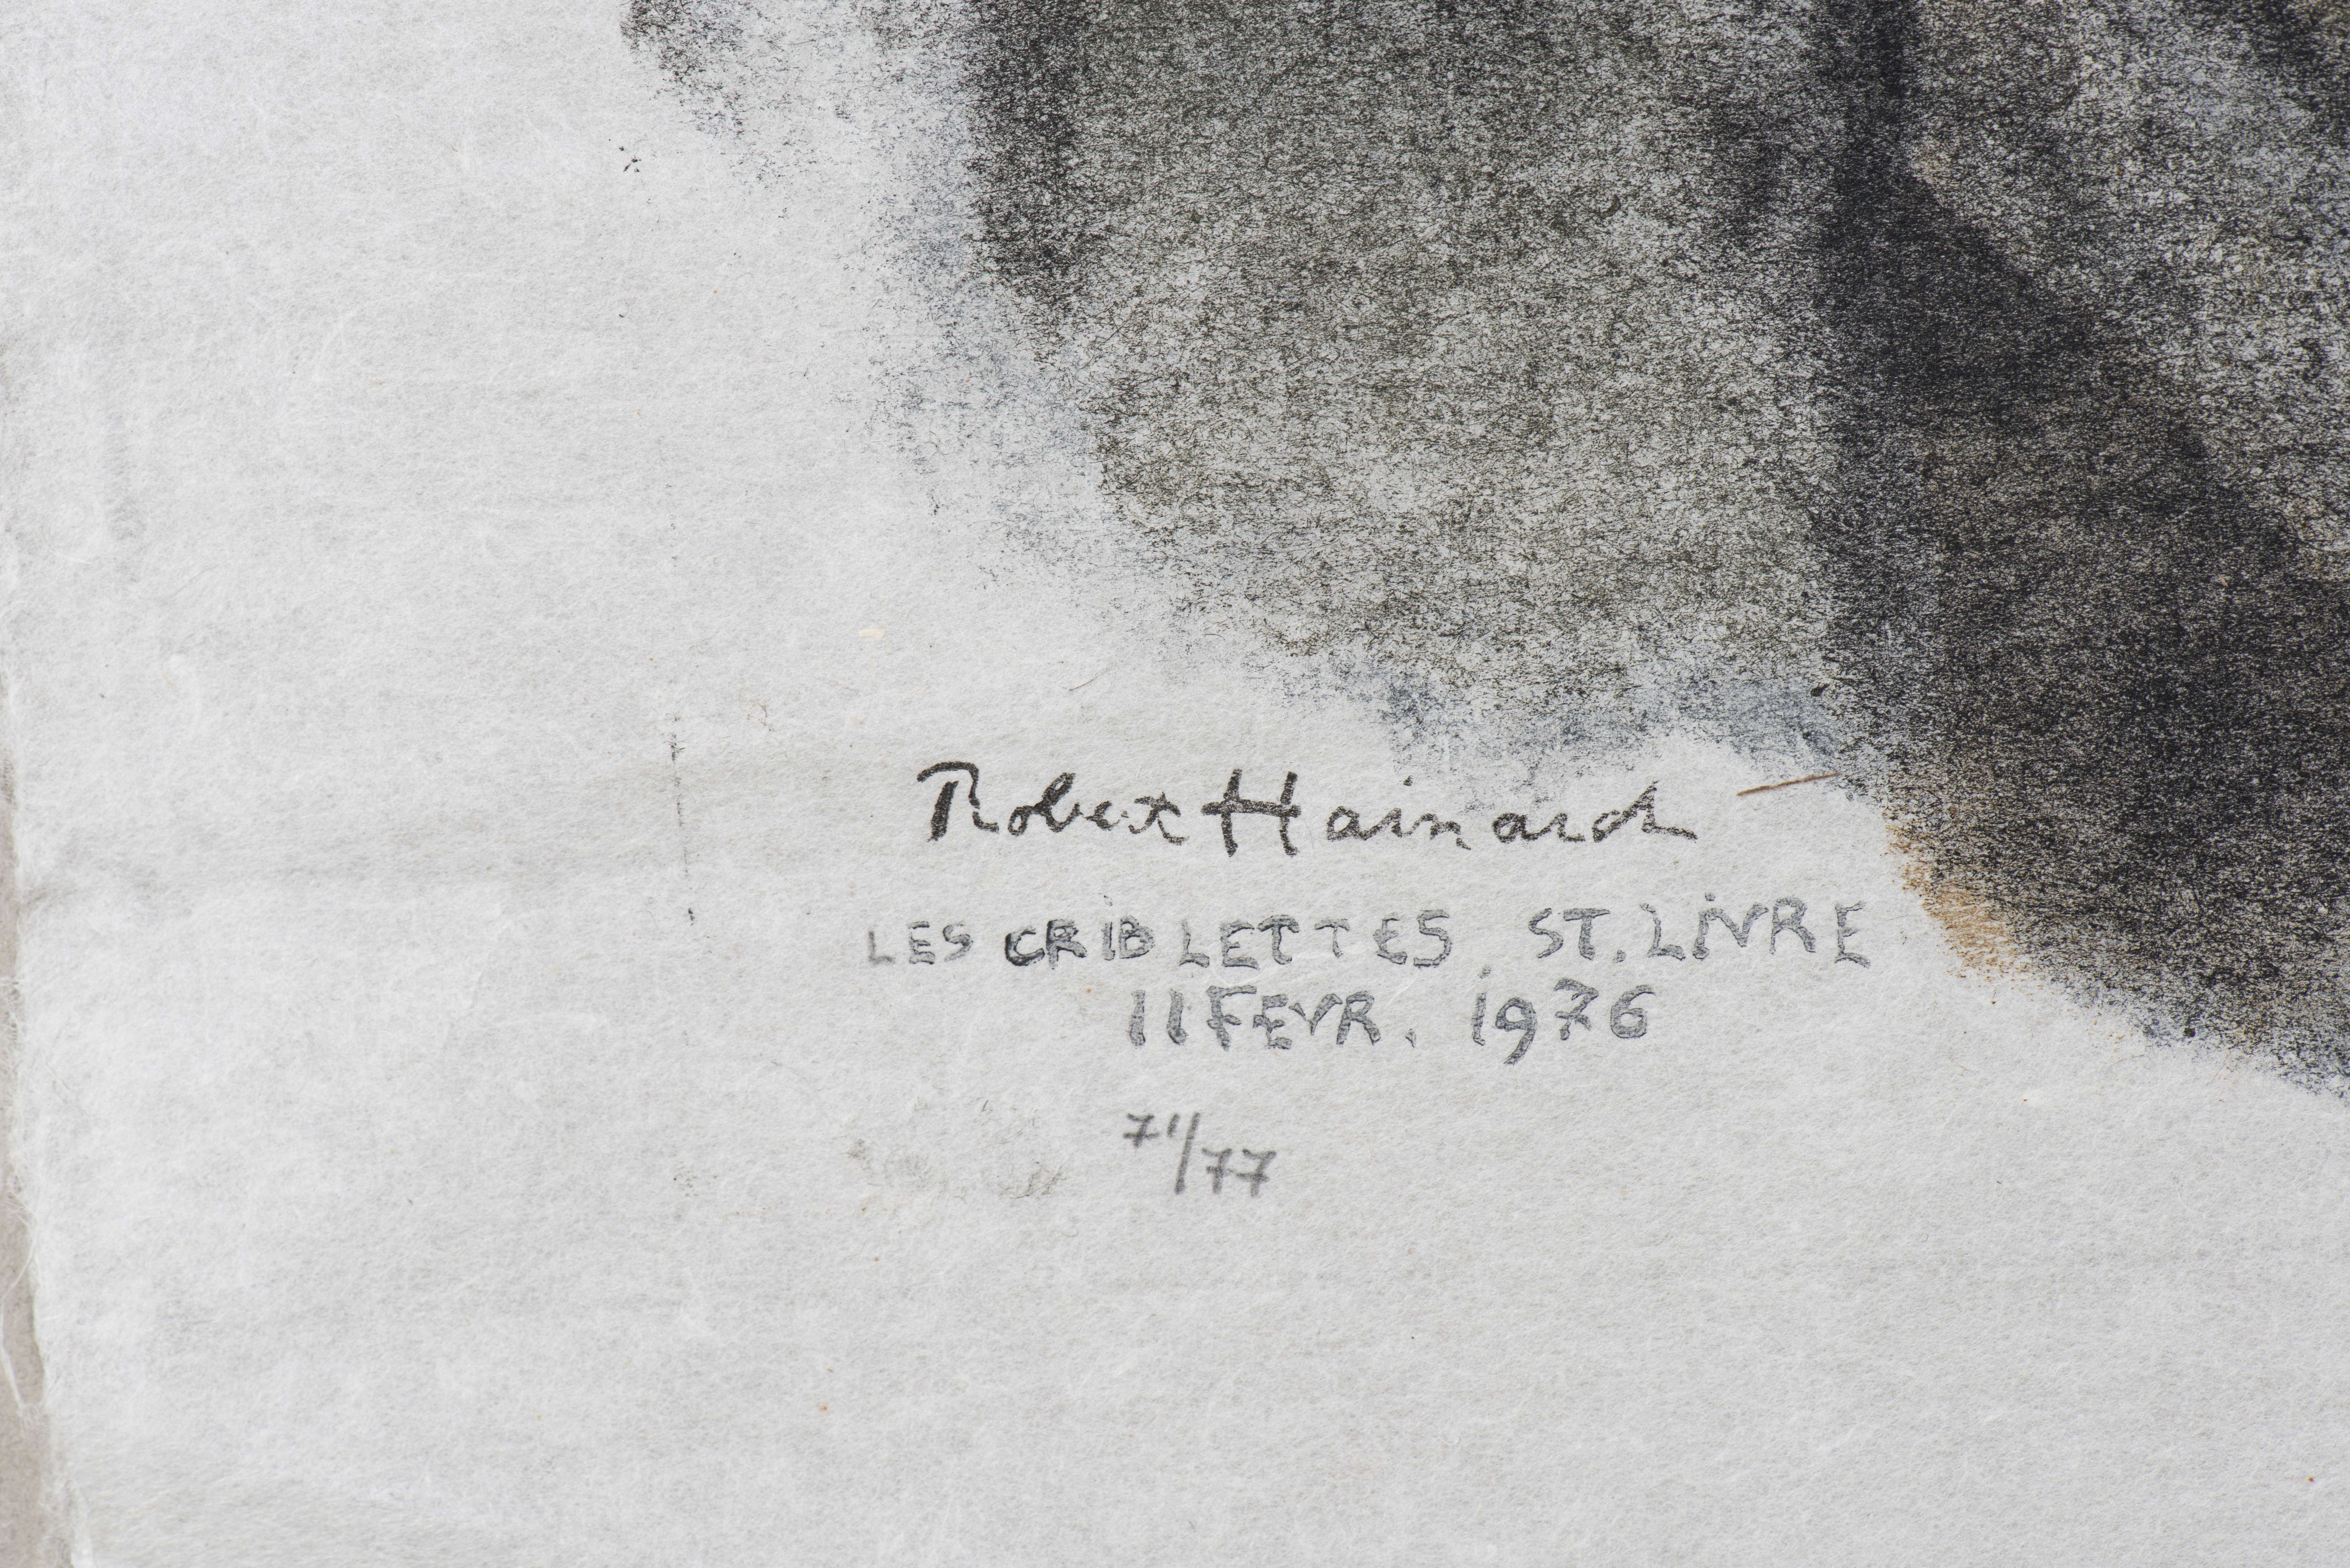 Robert Hainard
LES CRIBLETTES, ST. LIVRE
11 FEVR. 1976
71/77